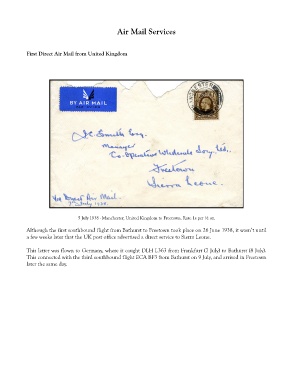 Air Mail Services
First Direct Air Mail from United Kingdom
BY AIR MAIL
MANCHESTER
J.C. Smith Esq.
Manager
Co-operative Wholesale Socy. Ltd.
Freetown
Sierra Leone.
Via Direct Air Mail
5 July 1938 - Manchester, United Kingdom to Freetown. Rate 1s per ½ oz.
Although the first southbound flight from Bathurst to Freetown took place on 26 June 1938, it wasn't until
a few weeks later that the UK post office advertised a direct service to Sierra Leone.
This letter was flown to Germany, where it caught DLH L363 from Frankfurt (7 July) to Bathurst (8 July).
This connected with the third southbound flight ECA BF3 from Bathurst on 9 July, and arrived in Freetown
later the same day.